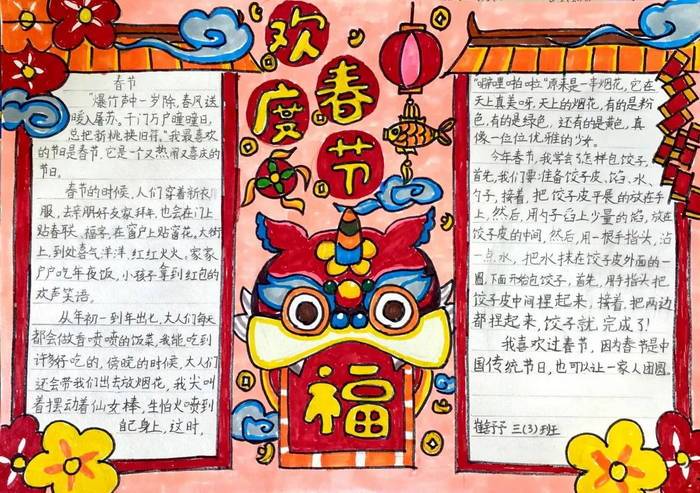 欢度
春节
福
春节
"爆竹声中一岁除,春风送
暖入屠苏。千门万户曈曈日,
总把新桃换旧符。"我最喜欢
的节日是春节,它是一个又热闹又喜庆的
节日。
春节的时候,人们穿着新衣
服,去亲朋好友家拜年,也会在门上
贴春联、福字,在窗户上贴窗花,大街
上,到处喜气洋洋,红红火火,家家
户户吃年夜饭,小孩子拿到红包的
欢声笑语。
从年初一到年出七,大人们每天
都会做香喷喷的饭菜,我能吃到
许多好吃的,傍晚的时候,大人们
还会带我们出去放烟花,我尖叫
着摆动着仙女棒,生怕火喷到
自己身上,这时,
"噼哩啪啦"原来是一串烟花,它在
天上真美呀,天上的烟花,有的是粉
色,有的是绿色,还有的是黄色,真
像一位位优雅的少女。
今年春节,我学会了怎样包饺子,
首先,我们要准备饺子皮、馅、水、
勺子,接着,把饺子皮平展的放在手
上,然后,用勺子舀上少量的馅,放在
饺子皮的中间,然后,用一根手指头,沾
一点水,把水抹在饺子皮外面的一
圈,下面开始包饺子,首先,用手指头把
饺子皮中间捏起来,接着,把两边
都捏起来,饺子就完成了!
我喜欢过春节,因为春节是中
国传统节日,也可以让一家人团圆。
三(3)班